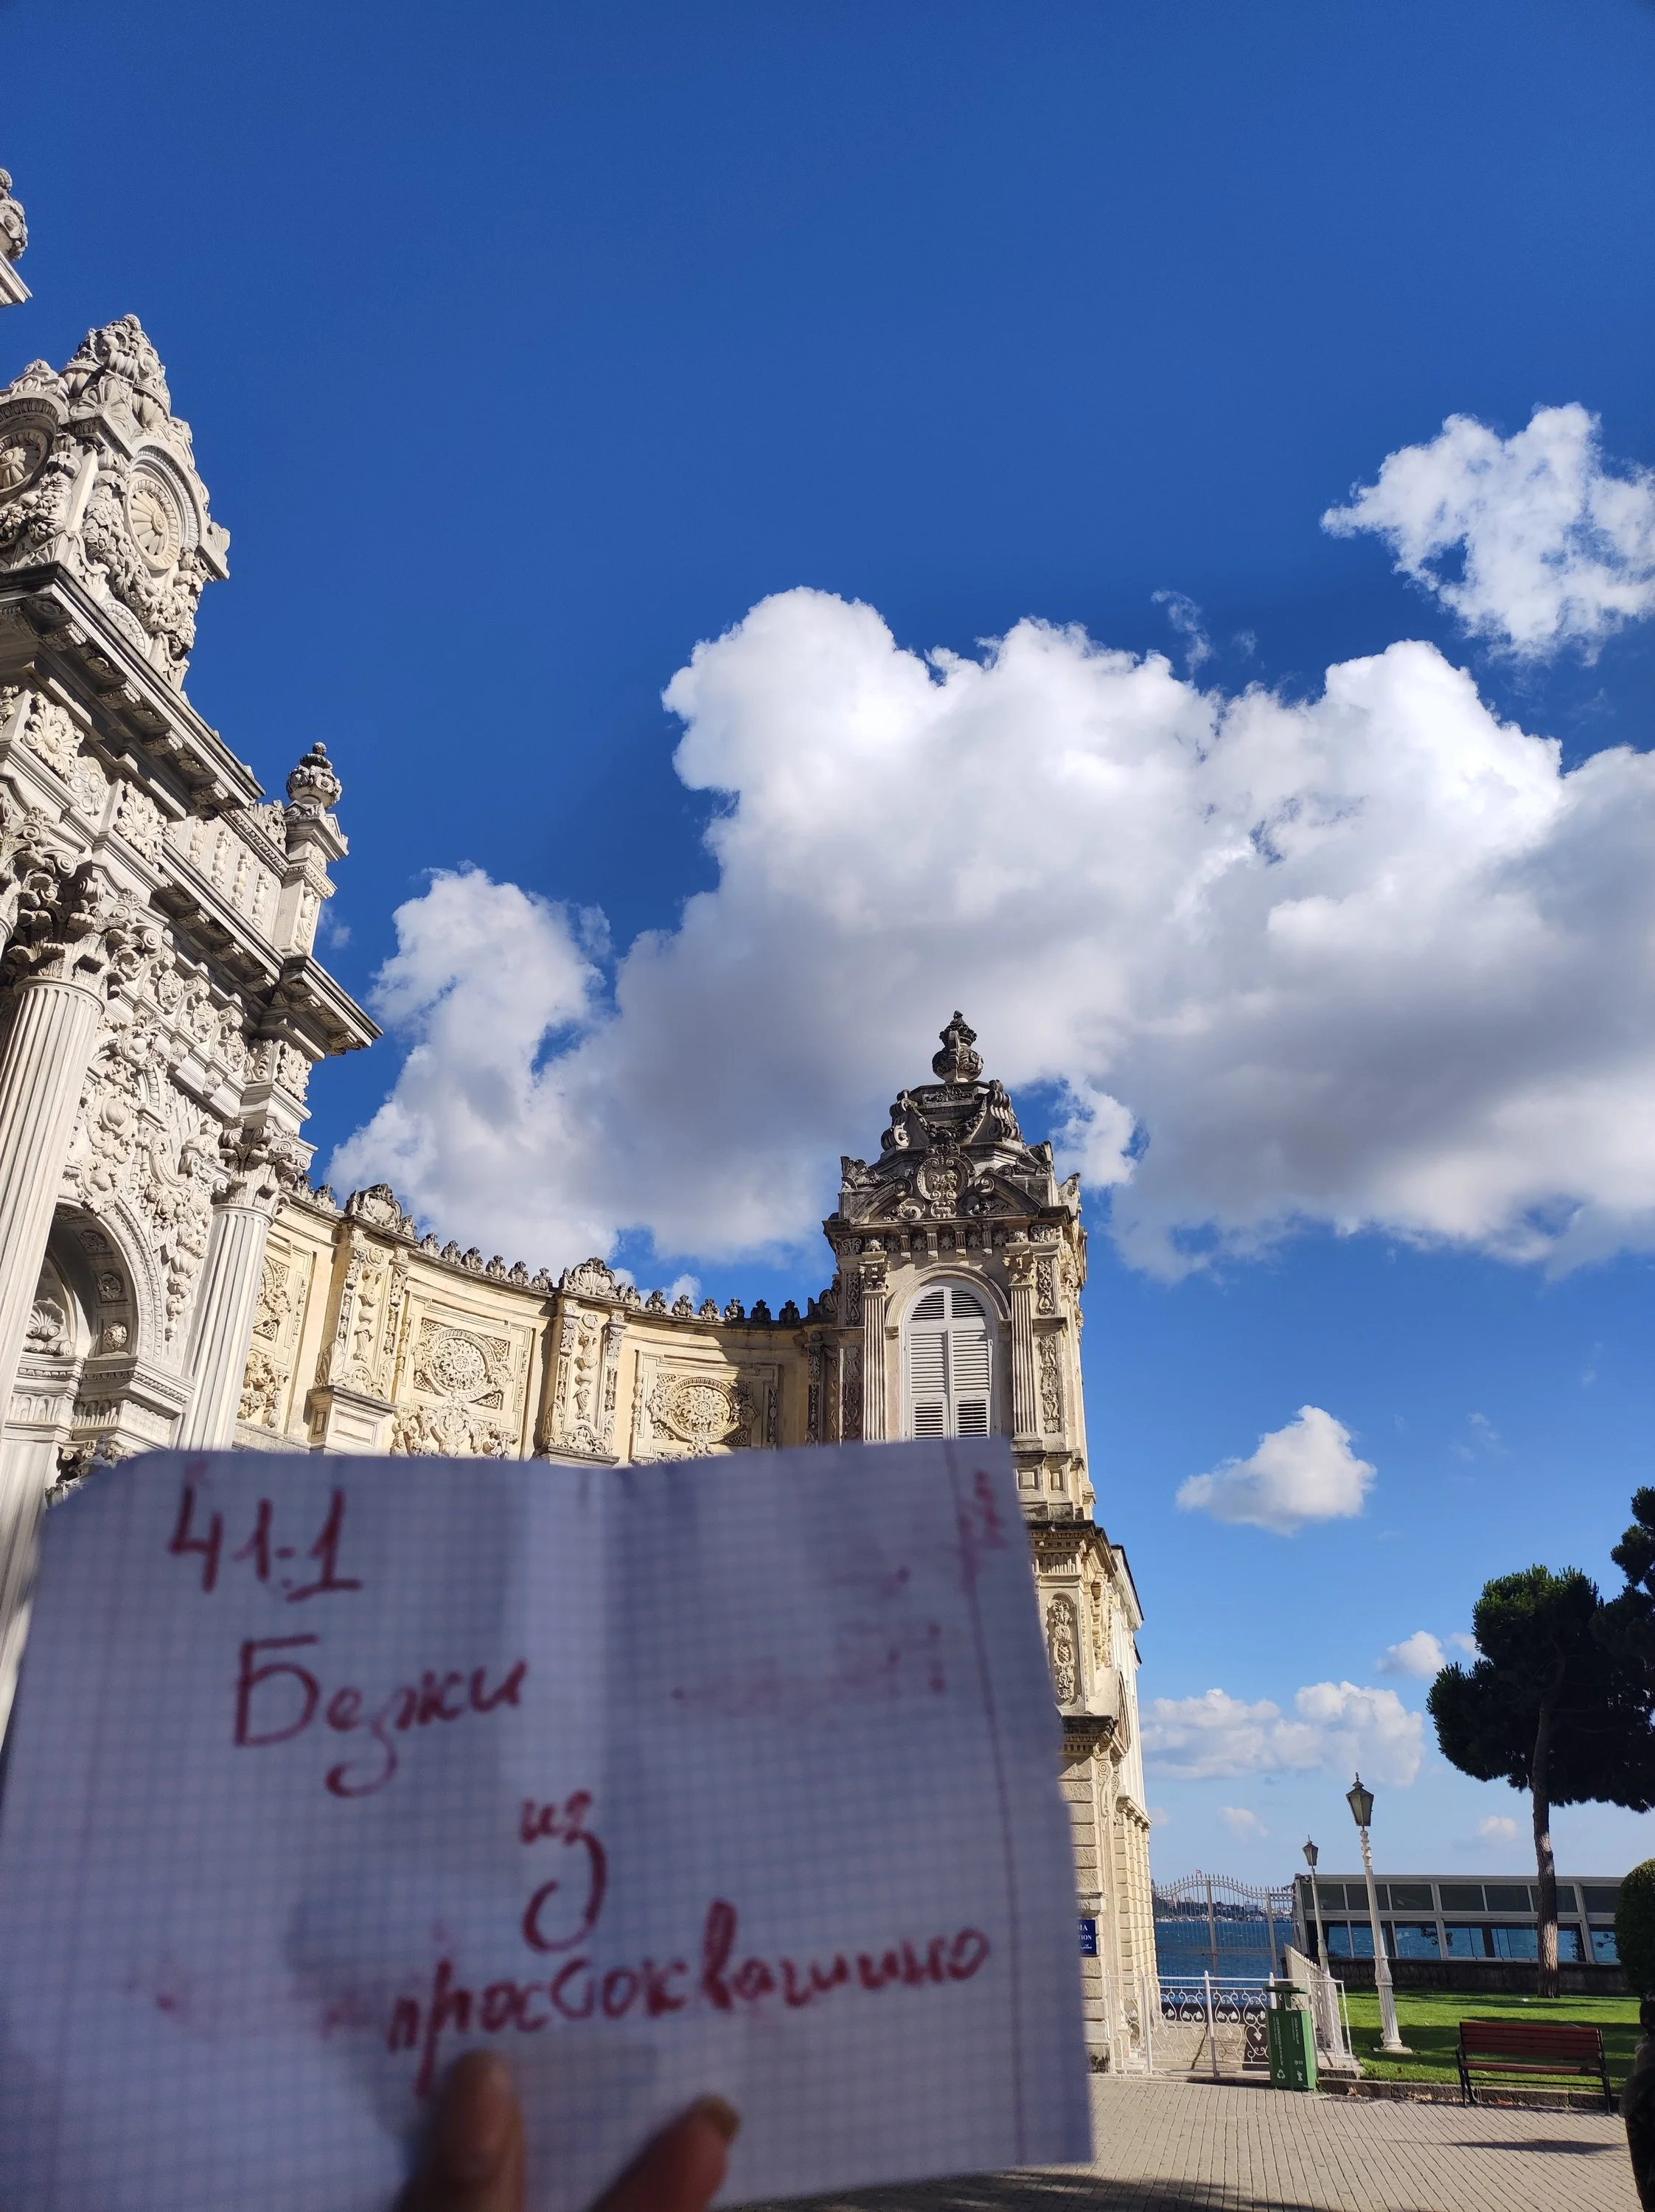 41-1
Бежи
из
простоквашино